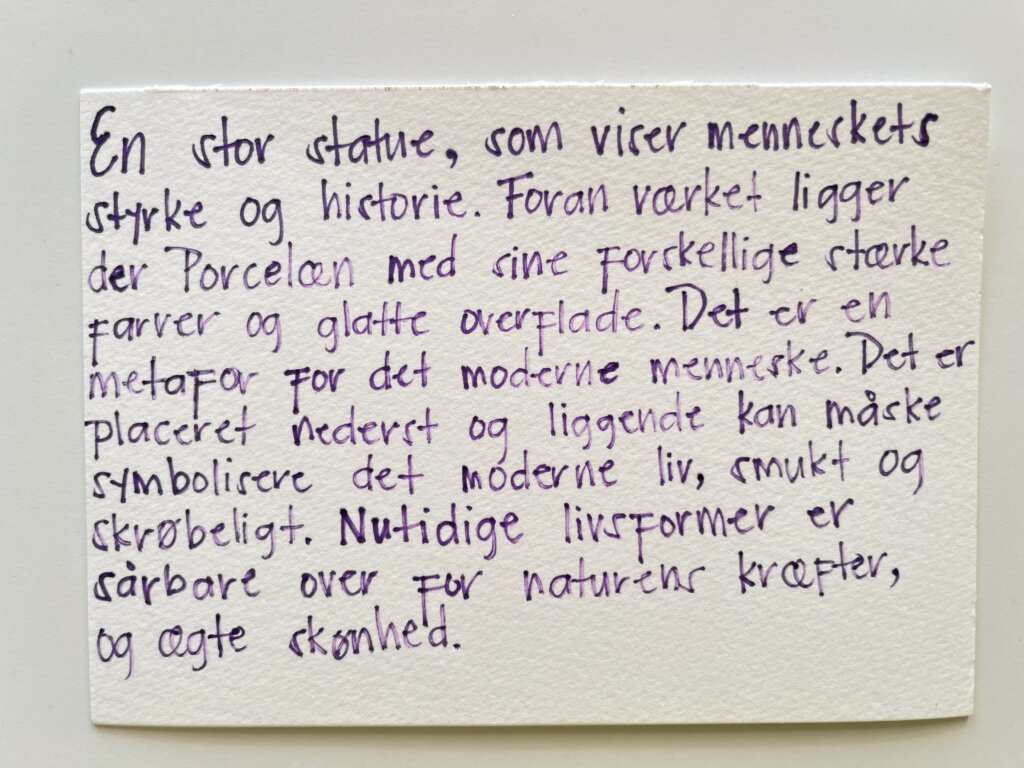 En stor statue, som viser menneskets
styrke og historie. Foran værket ligger
der Porcelæn med sine forskellige stærke
farver og glatte overflade. Det er en
metafor for det moderne menneske. Det er
placeret nederst og liggende kan måske
symbolisere det moderne liv, smukt og
skrøbeligt. Nutidige livsformer er
sårbare over for naturens kræfter,
og ægte skønhed.